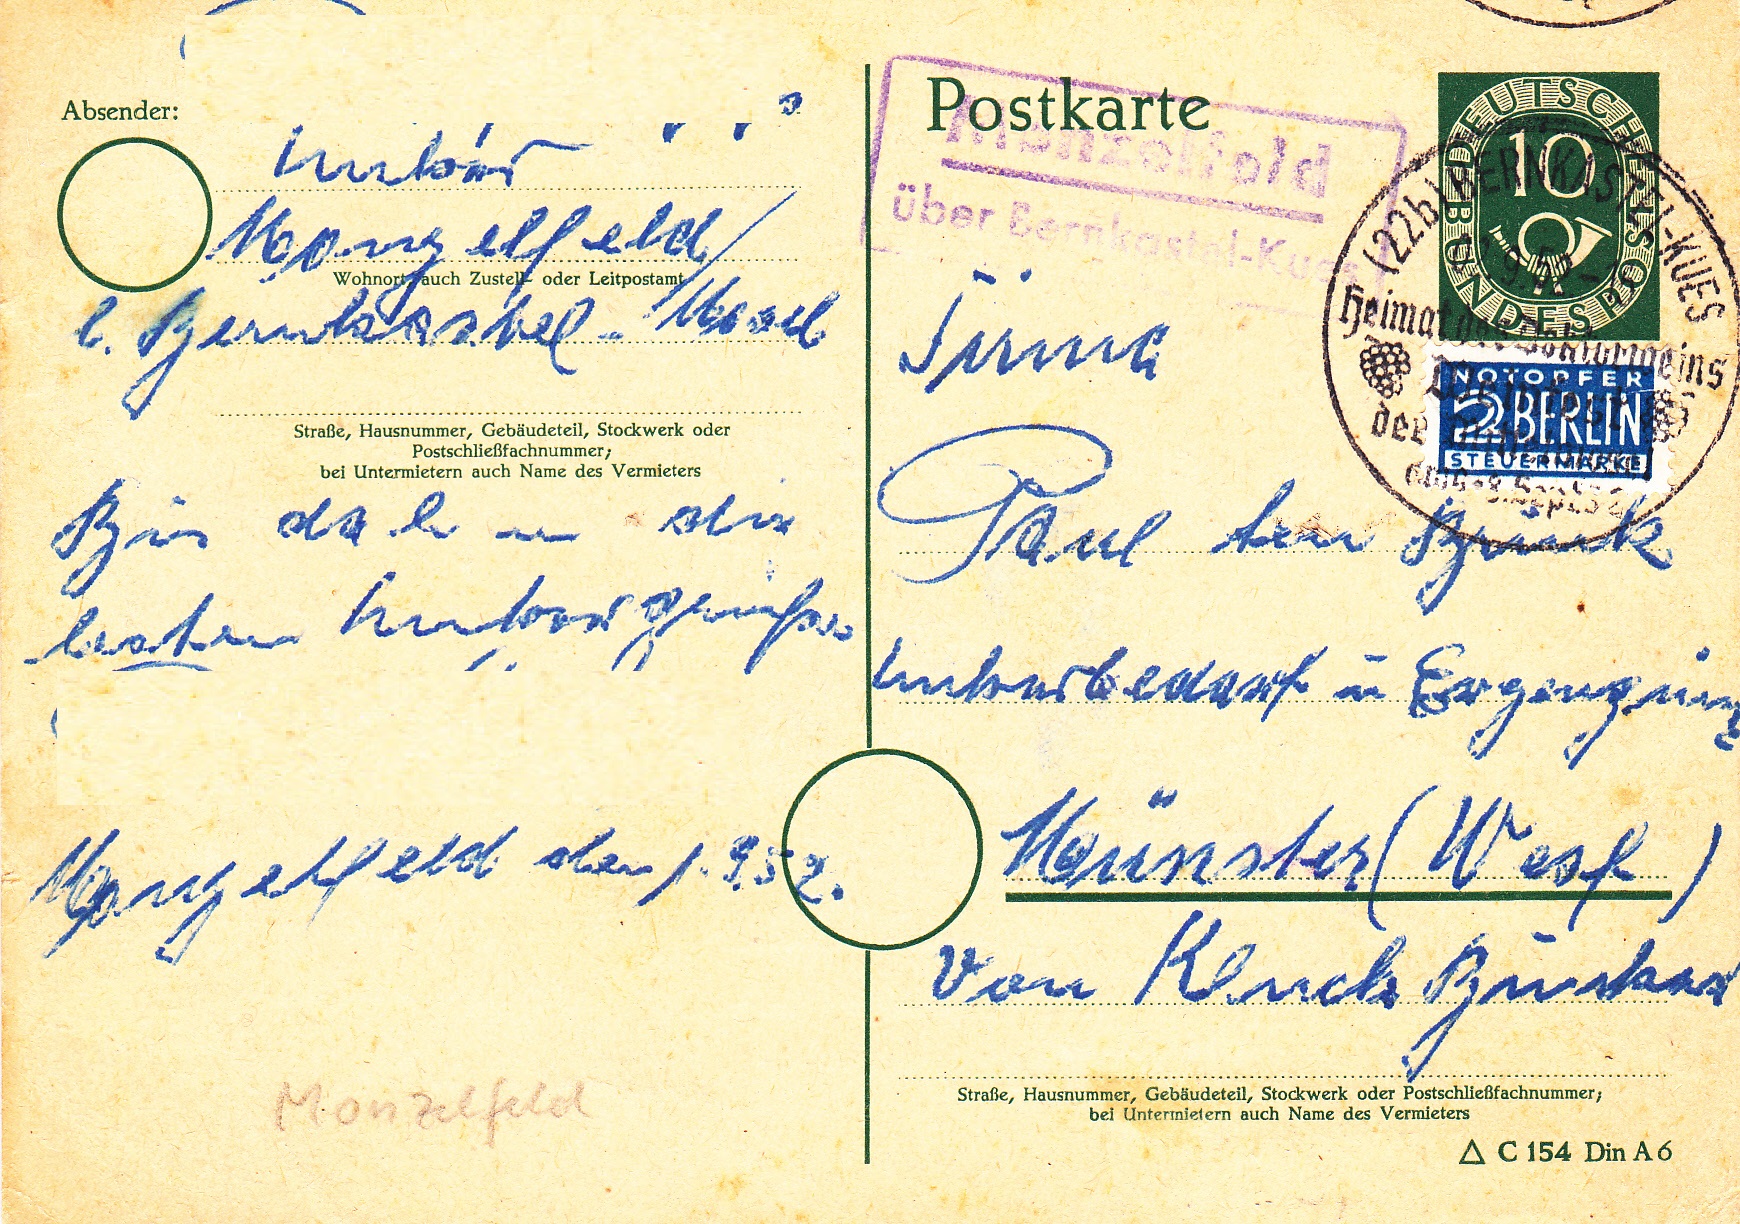 Absender:
Imker
Monzelfeld
Wohnort, auch Zustell- oder Leitpostamt
b. Bernkastel-Mosel
Straße, Hausnummer, Gebäudeteil, Stockwerk oder
Postschließfachnummer;
bei Untermietern auch Name des Vermieters
Bin das
besten Imkergrüßen
Monzelfeld den 1.9.52.
Monzelfeld
Postkarte
Monzelfeld
über Bernkastel-Kues
DEUTSCHE BUNDESPOST
10
(22b) BERNKASTEL-KUES
9.52
Heimat des Doktorweins
Weinfest
der Mittelmosel
Sept.52
NOTOPFER
2 BERLIN
STEUERMARKE
Firma
Paul ten Brink
Imkerbedarf u Erzeugung
Münster (Westf)
Von Kluck
Straße, Hausnummer, Gebäudeteil, Stockwerk oder Postschließfachnummer;
bei Untermietern auch Name des Vermieters
△ C 154 Din A 6